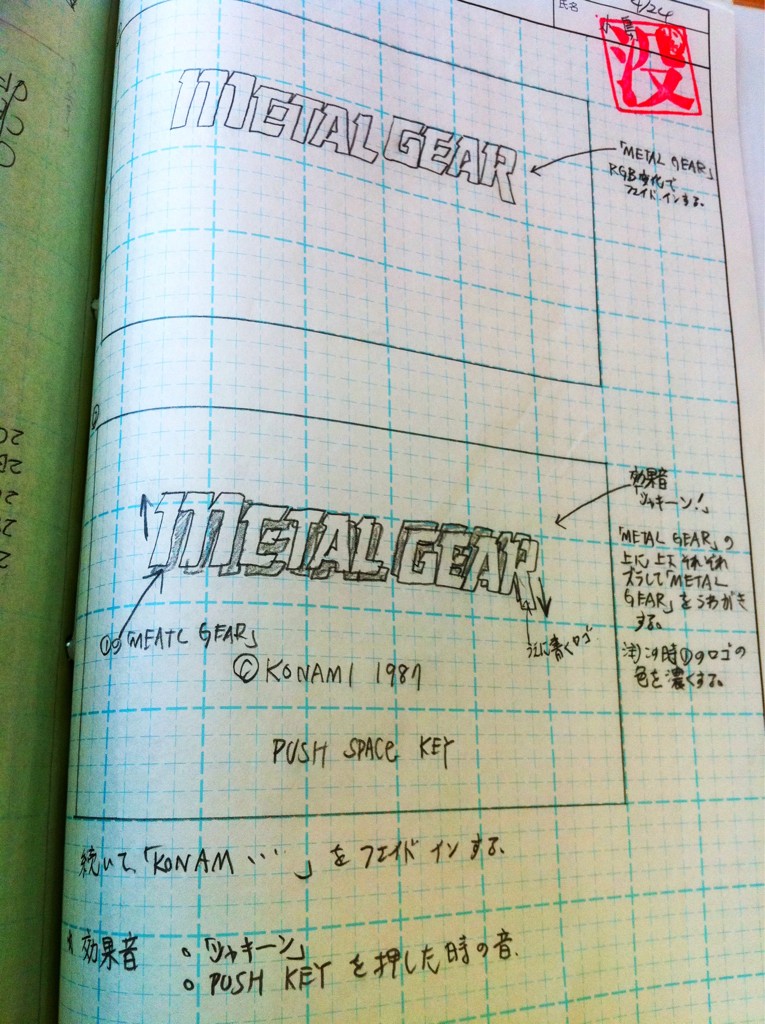 氏名
4/24
小島
没
METAL GEAR
「METAL GEAR」
RGB変化で
フェイドインする。
METAL GEAR
効果音
「ジャキーン!」
「METAL GEAR」の
上に上下それぞれ
ズラして「METAL
GEAR」をうわがき
する。
注)この時①のロゴの
色を濃くする。
①の「MEATL GEAR」
© KONAMI 1987
PUSH SPACE KEY
続いて、「KONAM…」をフェイドインする。
効果音 。「ジャキーン」
。PUSH KEY を押した時の音.